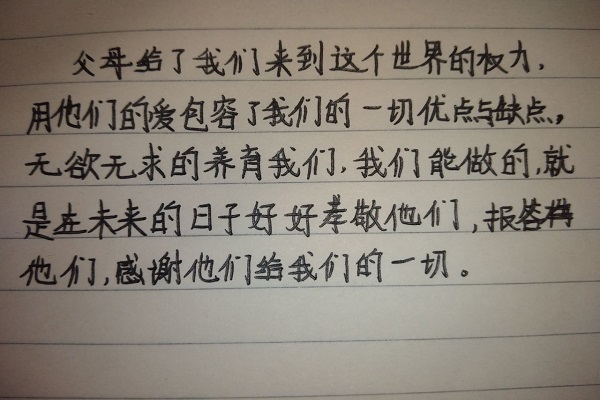 父母给了我们来到这个世界的权力，
用他们的爱包容了我们的一切优点与缺点，
无欲无求的养育我们，我们能做的，就
是在未来的日子好好孝敬他们，报答
他们，感谢他们给我们的一切。